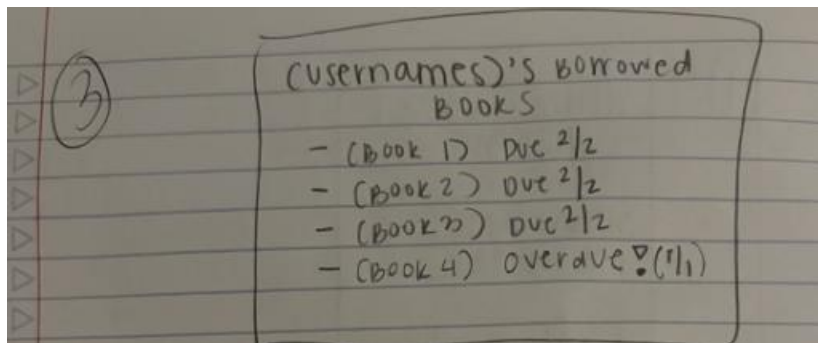 3
(usernames)'s Borrowed
BOOKS
- (Book 1) Due 2/2
- (Book 2) Due 2/2
- (Book 3) Due 2/2
- (Book 4) Overdue! (1/1)